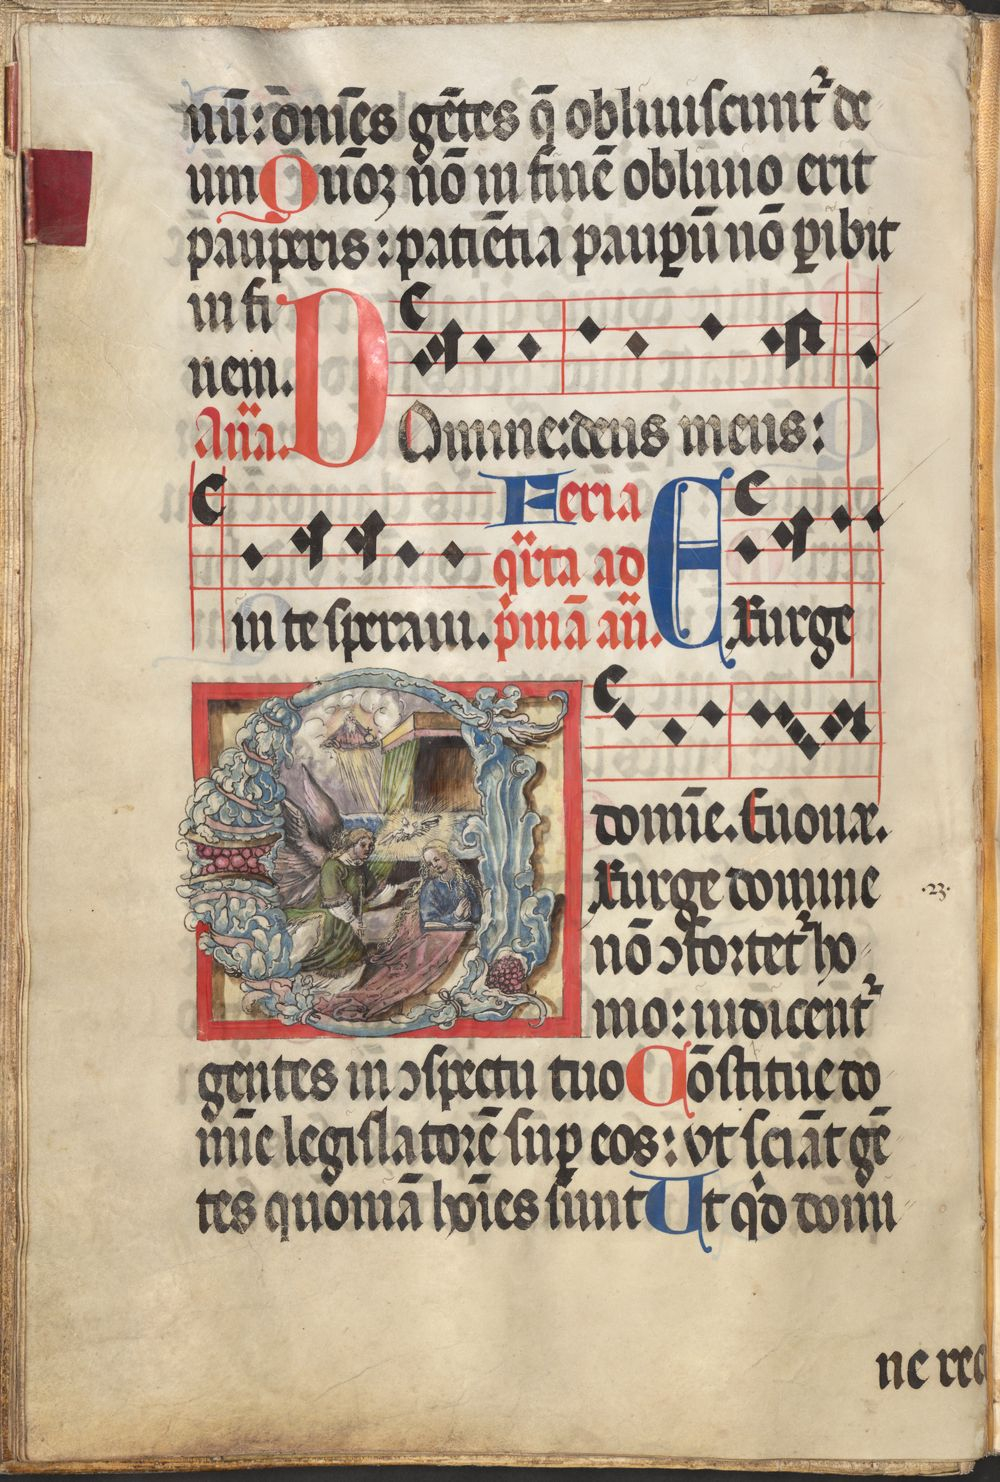 nū: ōnīes gētes q̄ obliuiscunt᷑ de
um Qm̄oꝝ nō in finē obliuio erit
pauperis: patiētia paupū nō ꝑibit
in fi
nem.
Aña. D
Omine: deus meus:
in te speraui. Feria
qͥrta ad
pͥmā añ. Exurge
domīe. Euouæ.
Exurge domine
nō ↄfortet᷑ ho
mo: iudicent᷑
·23·
gentes in ↄspectu tuo Cōstitue do
mīe legislatorē suꝑ eos: vt sciāt gē
tes quoniā hoīes sunt Ut qͥd domi
ne rec